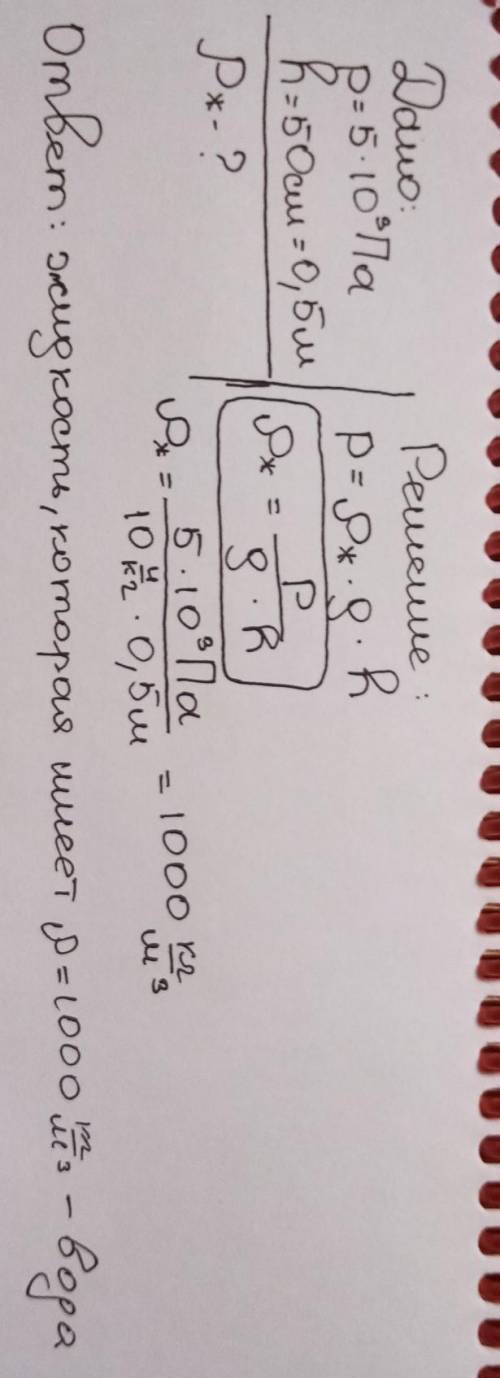 Дано:
p = 5 · 10³ Па
h = 50 см = 0,5 м
ρж - ?
Решение:
p = ρж · g · h
ρж = p / (g · h)
ρж = 5 · 10³ Па / (10 н/кг · 0,5 м) = 1000 кг/м³
Ответ: жидкость, которая имеет ρ = 1000 кг/м³ – вода